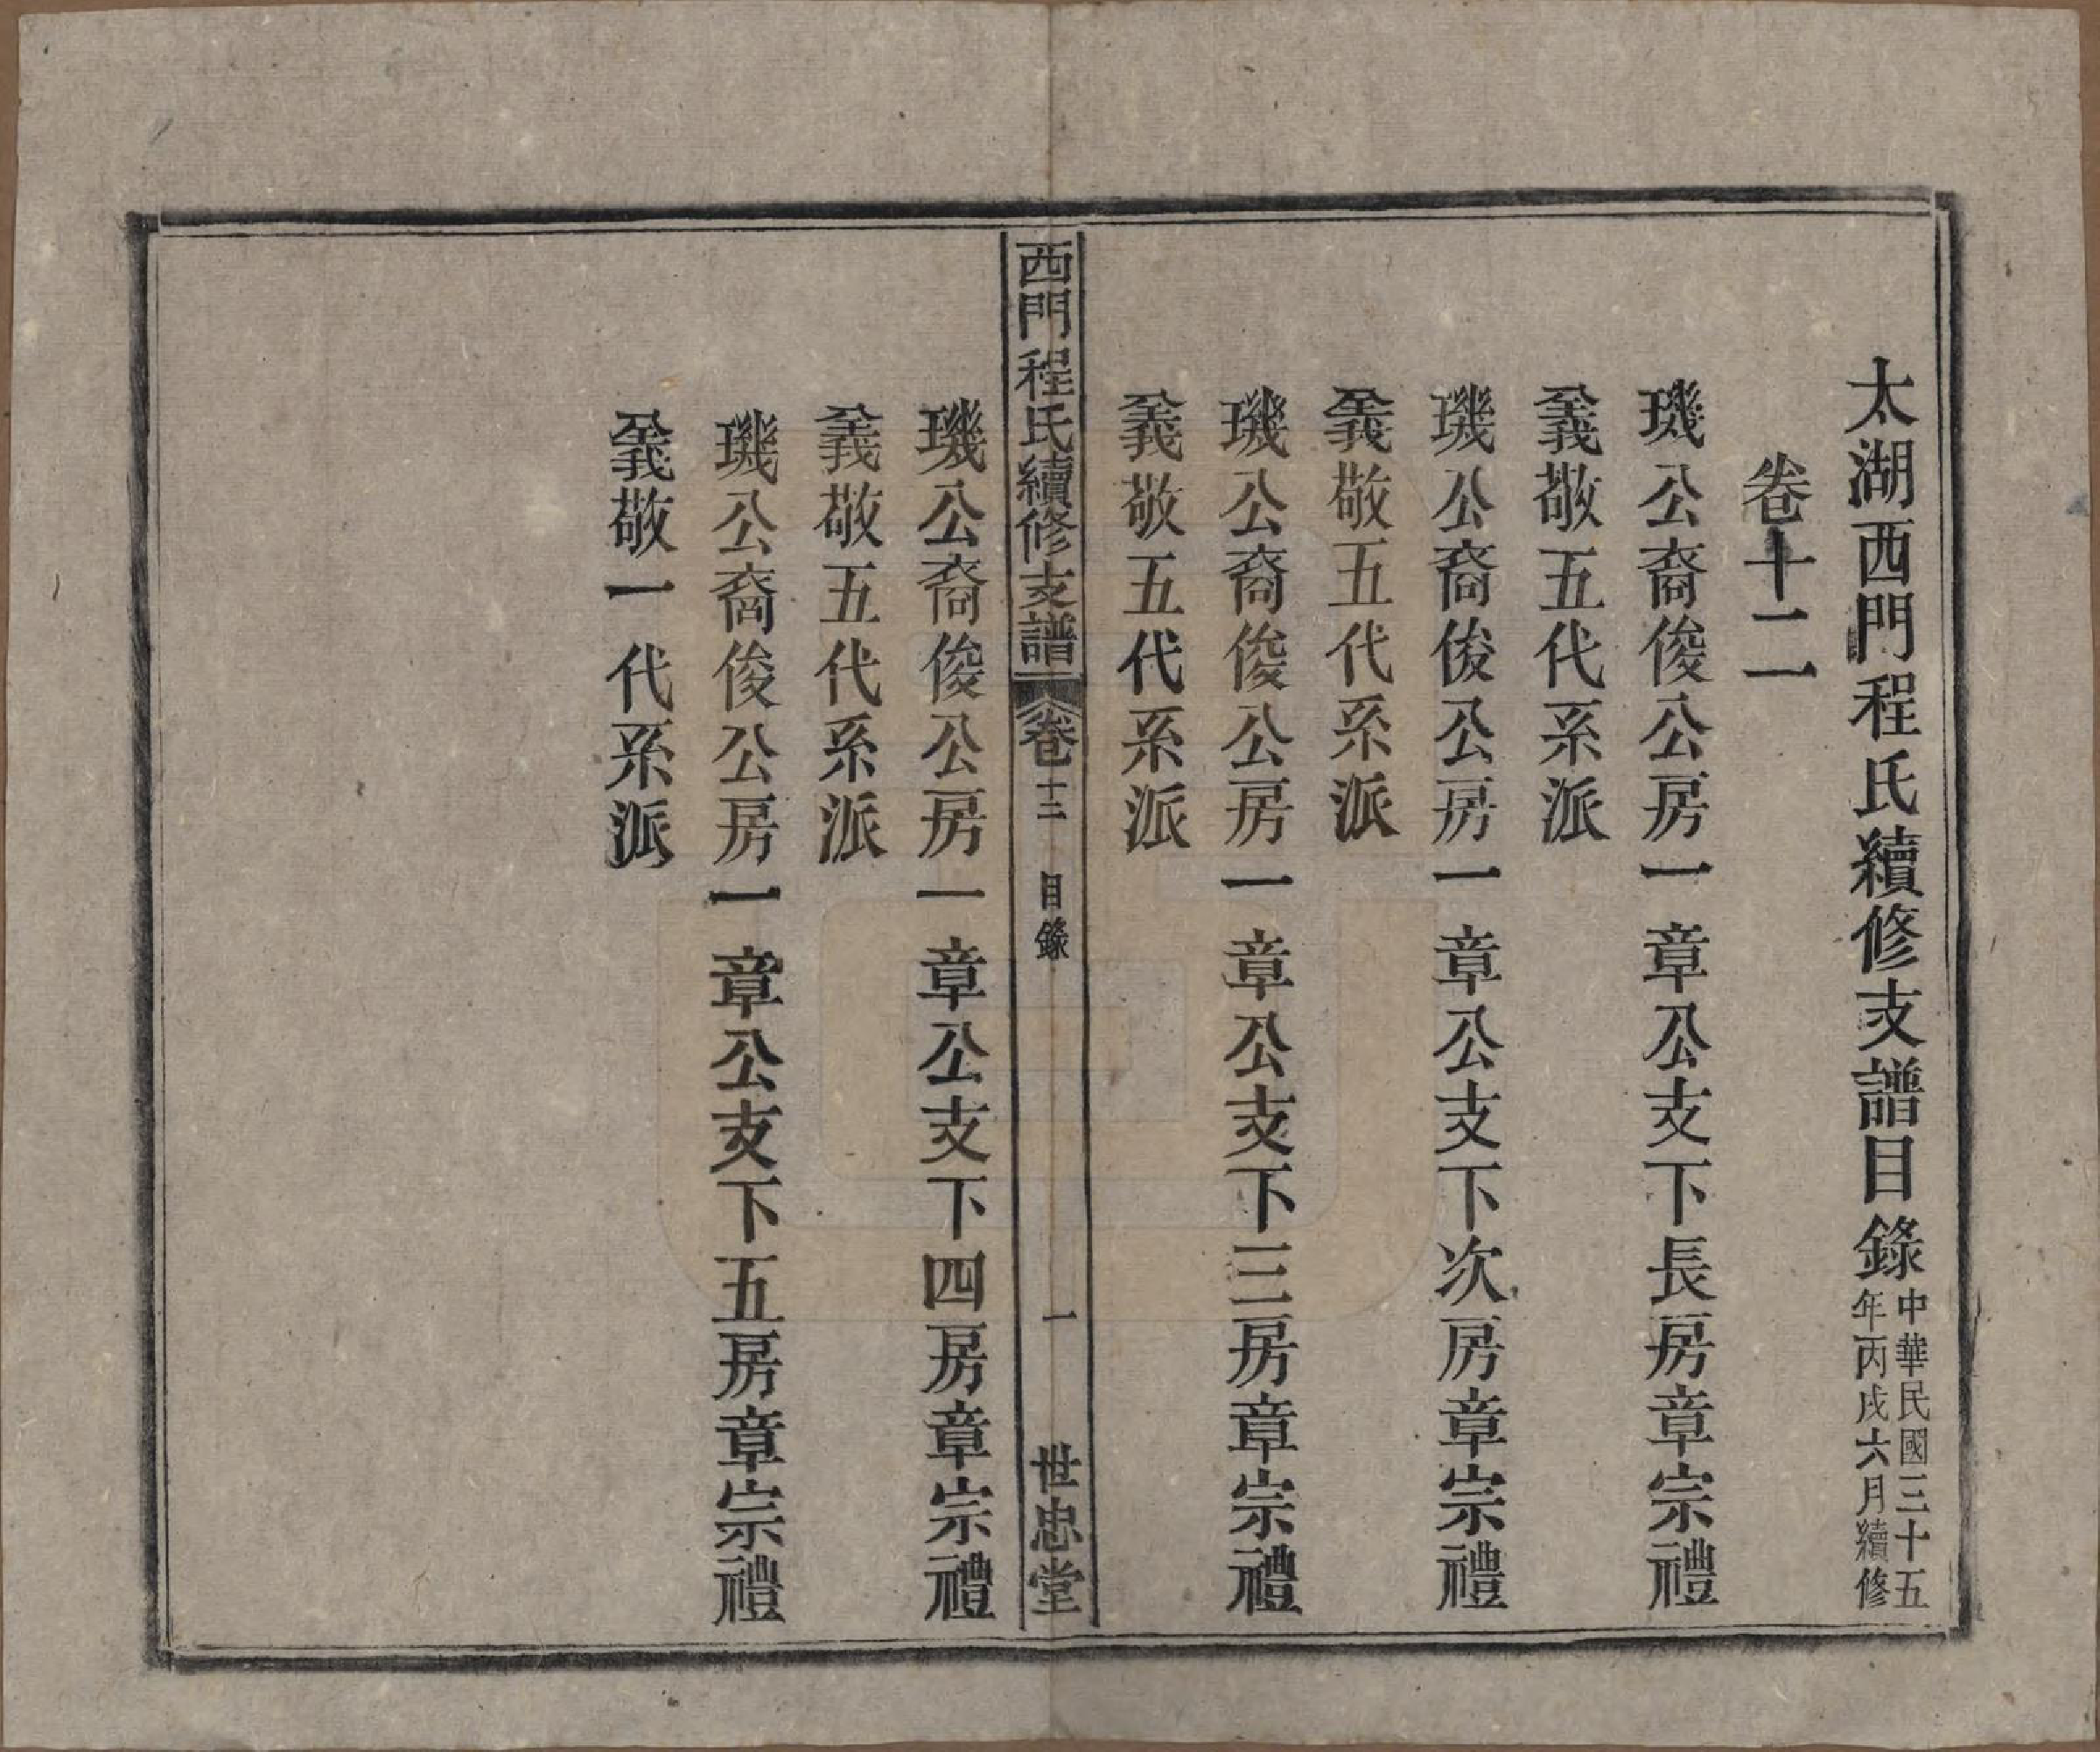 太湖西門程氏續修支譜目錄 中華民國三十五年丙戌六月續修
卷十二
璣公裔俊公房一章公支下長房章宗禮
義敬五代系派
璣公裔俊公房一章公支下次房章宗禮
義敬五代系派
璣公裔俊公房一章公支下三房章宗禮
義敬五代系派
西門程氏續修支譜 卷十二 目錄 一 世忠堂
璣公裔俊公房一章公支下四房章宗禮
義敬五代系派
璣公裔俊公房一章公支下五房章宗禮
義敬一代系派